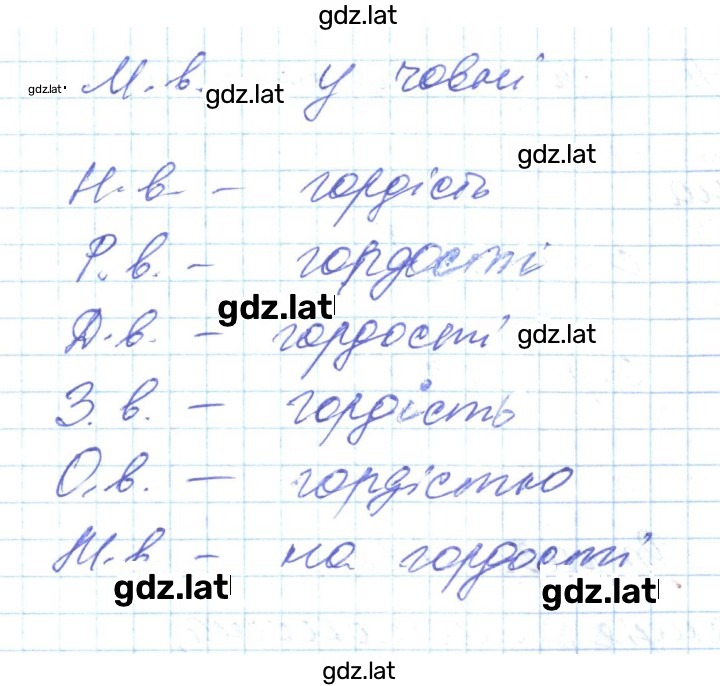 gdz.lat
М.в. у човні
gdz.lat gdz.lat
gdz.lat
Н.в. – гордість
Р.в. – гордості
gdz.lat
Д.в. – гордості gdz.lat
З.в. – гордість
О.в. – гордістю
М.в – на гордості
gdz.lat gdz.lat
gdz.lat